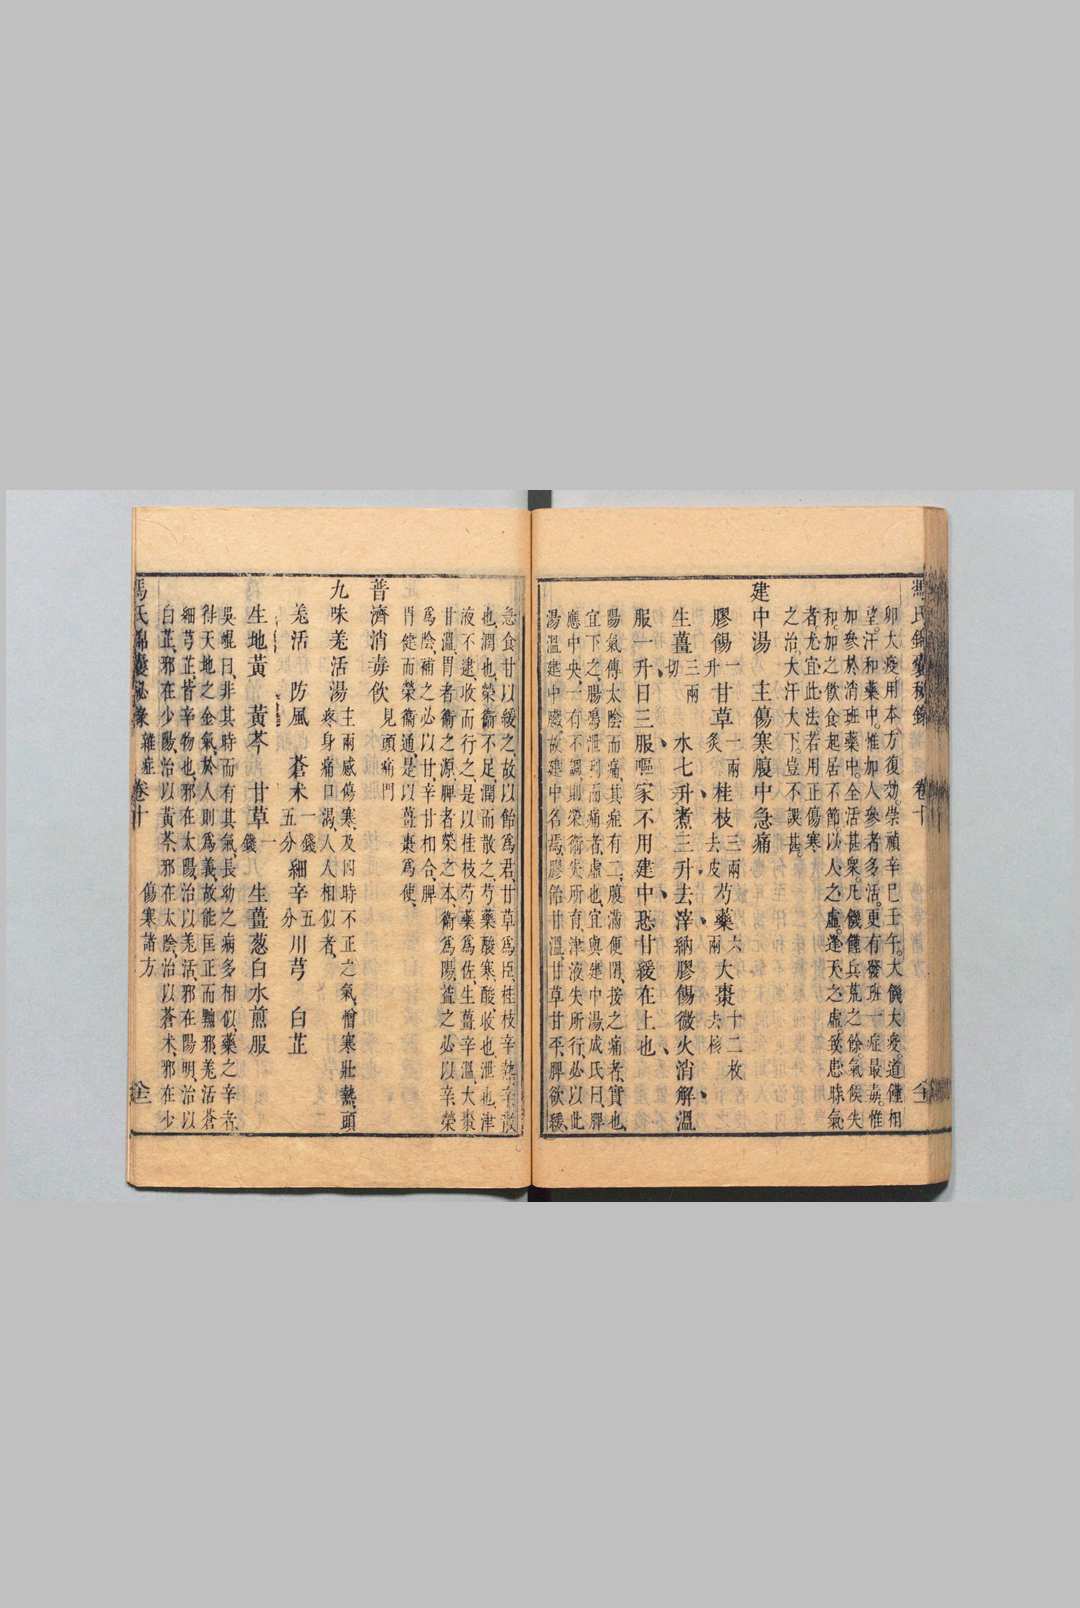 馮氏錦囊秘錄 卷十 全
卯大疫用本方復効崇禎辛巳壬午大饑大疫道僵相
望汗和藥中惟加人參者多活更有發班一症最毒惟
加參於消班藥中全活甚衆凡饑饉兵荒之餘氣候失
和加之飲食起居不節以人之虛逢天之虛致患時氣
者尤宜此法若用正傷寒
之治大汗大下豈不誤甚
建中湯 主傷寒腹中急痛
膠餳一升 甘草一兩炙 桂枝三兩去皮 芍藥六兩 大棗十二枚去核
生薑三兩切 水七升煮三升去滓納膠餳微火消解溫
服一升日三服嘔家不用建中恐甘緩在上也
陽氣傳太陰而痛其症有二腹滿便閉按之痛者實也
宜下之腸鳴泄利而痛者虛也宜與建中湯成氏曰脾
應中央一有不調則榮衞失所育津液失所行必以此
湯溫建中臟故建中名焉膠飴甘溫甘草甘平脾欲緩
急食甘以緩之故以飴爲君甘草爲臣桂枝辛熱辛散
也潤也榮衞不足潤而散之芍藥酸寒酸收也泄也津
液不逮收而行之是以桂枝芍藥爲佐生薑辛溫大棗
甘溫胃者衞之源脾者榮之本衞爲陽益之必以辛榮
爲陰補之必以甘辛甘相合脾
胃健而榮衞通是以薑棗爲使
普濟消毒飲 見頭痛門
九味羌活湯 主兩感傷寒及四時不正之氣憎寒壯熱頭
疼身痛口渴人人相似者
羌活 防風 蒼朮一錢五分 細辛五分 川芎 白芷
生地黃 黃芩 甘草一錢 生薑葱白水煎服
吳崐曰非其時而有其氣長幼之病多相似藥之辛者
得天地之金氣於人則爲義故能匡正而黜邪羌活蒼
細芎芷皆辛物也邪在太陽治以羌活邪在陽明治以
白芷邪在少陽治以黃芩邪在太陰治以蒼朮邪在少
馮氏錦囊秘錄 雜症 卷十 傷寒諸方 全二